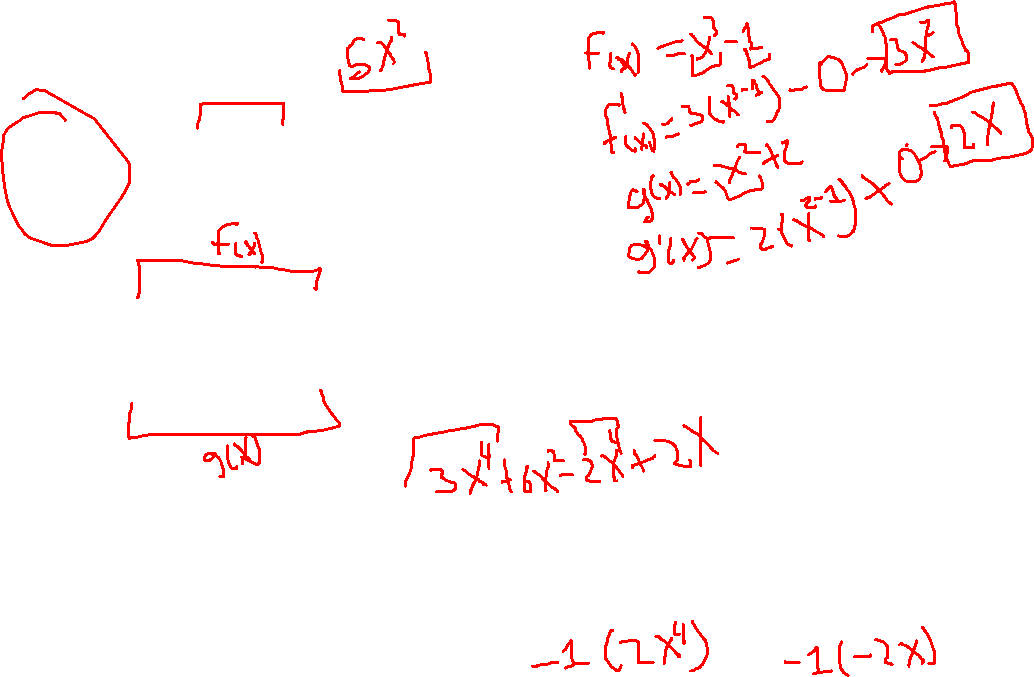 5x²
f(x) = x³-1
f'(x) = 3(x³⁻¹) - 0 → 3x²
g(x) = x²+2
g'(x) = 2(x²⁻¹) + 0 → 2x
f(x)
g(x)
3x⁴+6x²-2x⁴+2x
-1(2x⁴) -1(-2x)